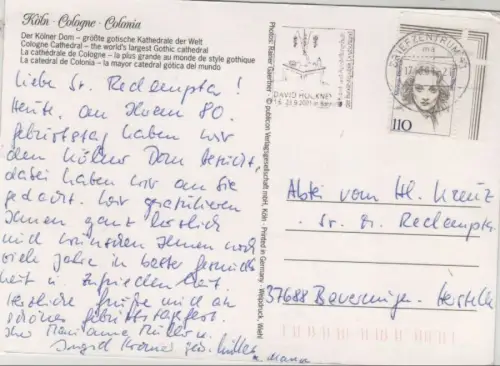 Köln · Cologne · Colonia
Der Kölner Dom – größte gotische Kathedrale der Welt
Cologne Cathedral – the world's largest Gothic cathedral
La cathédrale de Cologne – la plus grande au monde de style gothique
La catedral de Colonia – la mayor catedral gótica del mundo
Liebe Sr. Redempta!
Heute, an Ihrem 80.
Geburtstag haben wir
den Kölner Dom besucht,
dabei haben wir an Sie
gedacht. Wir gratulieren
Ihnen ganz herzlich
und wünschen Ihnen noch
viele Jahre in bester Gesund-
heit u. Zufriedenheit.
Herzliche Grüße und ein
schönes Geburtstagsfest.
Ihre Marianne Müller u.
Ingrid Kramer geb. Müller
Photos: Rainer Gaertner · © publicon Verlagsgesellschaft mbH, Köln · Printed in Germany · Weppdruck, Wiehl
DAVID HOCKNEY
BRIEFZENTRUM
110
Abtei vom Hl. Kreuz
Sr. Redempta
37688 Beverungen - Herstelle